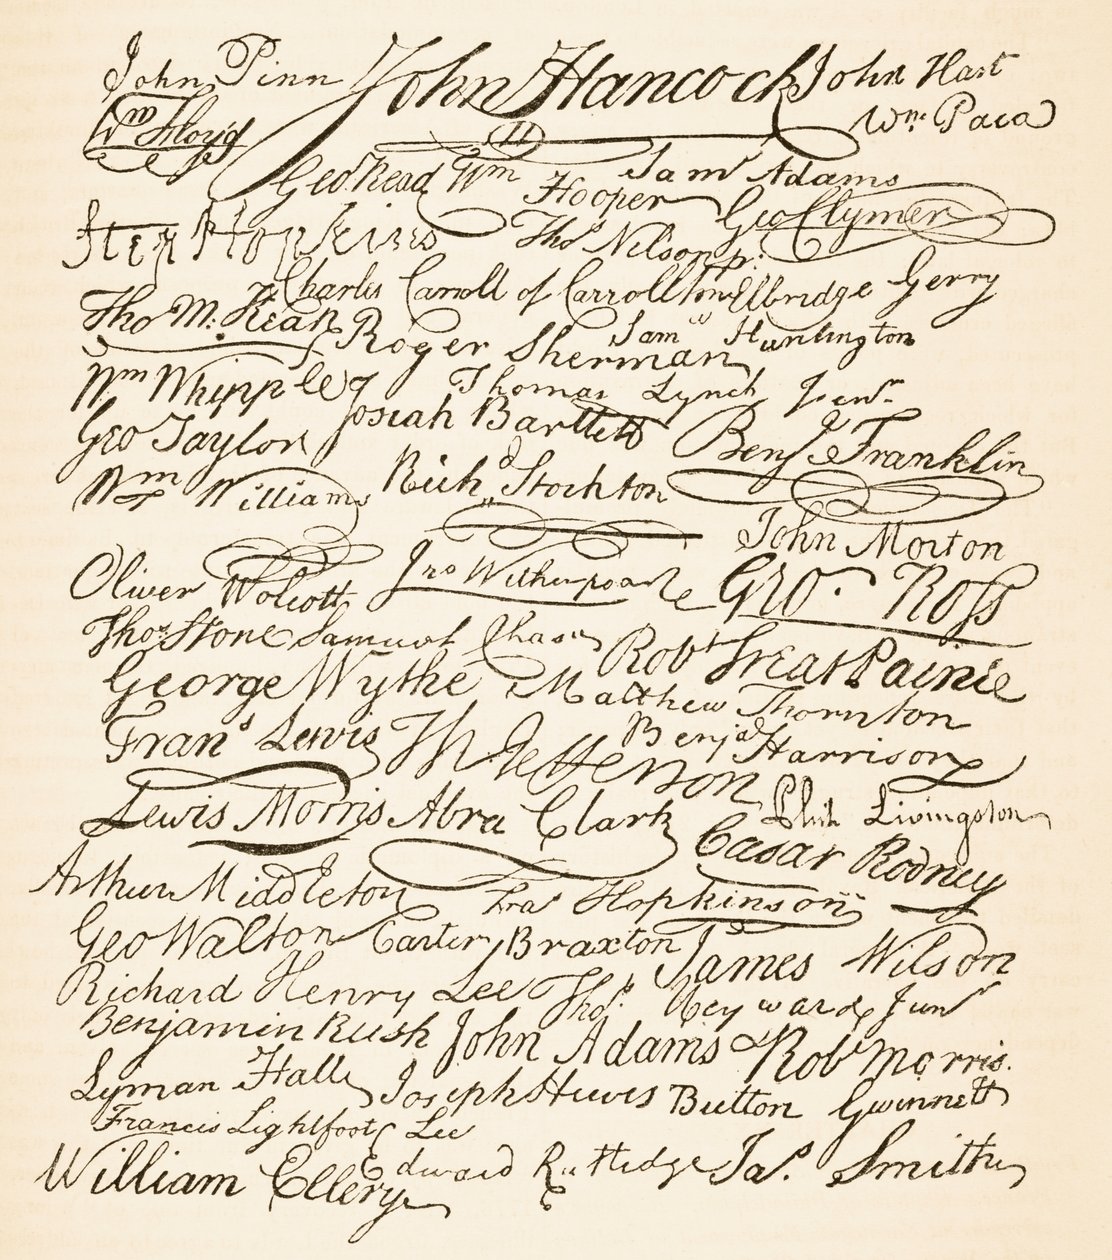 John Penn John Hancock John Hart
Wm Floyd Wm. Paca
Geo. Read Wm Hooper Saml Adams
Geo Clymer
Step Hopkins Thos Nelson jr.
Charles Carroll of Carrollton Elbridge Gerry
Tho M: Kean Roger Sherman Saml Huntington
Wm Whipple Thomas Lynch Junr
Josiah Bartlett
Geo Taylor Benj Franklin
Wm Williams Richd Stockton
John Morton
Oliver Wolcott Jno Witherspoon Geo. Ross
Thos Stone Samuel Chase Robt Treat Paine
George Wythe Matthew Thornton
Frans Lewis Th Jefferson Benja Harrison
Lewis Morris Abra Clark Phil Livingston
Cæsar Rodney
Arthur Middleton Fras Hopkinson
Geo Walton Carter Braxton James Wilson
Richard Henry Lee Thos Heyward Junr
Benjamin Rush John Adams Robt Morris.
Lyman Hall Joseph Hewes Button Gwinnett
Francis Lightfoot Lee
William Ellery Edward Rutledge Jas Smith